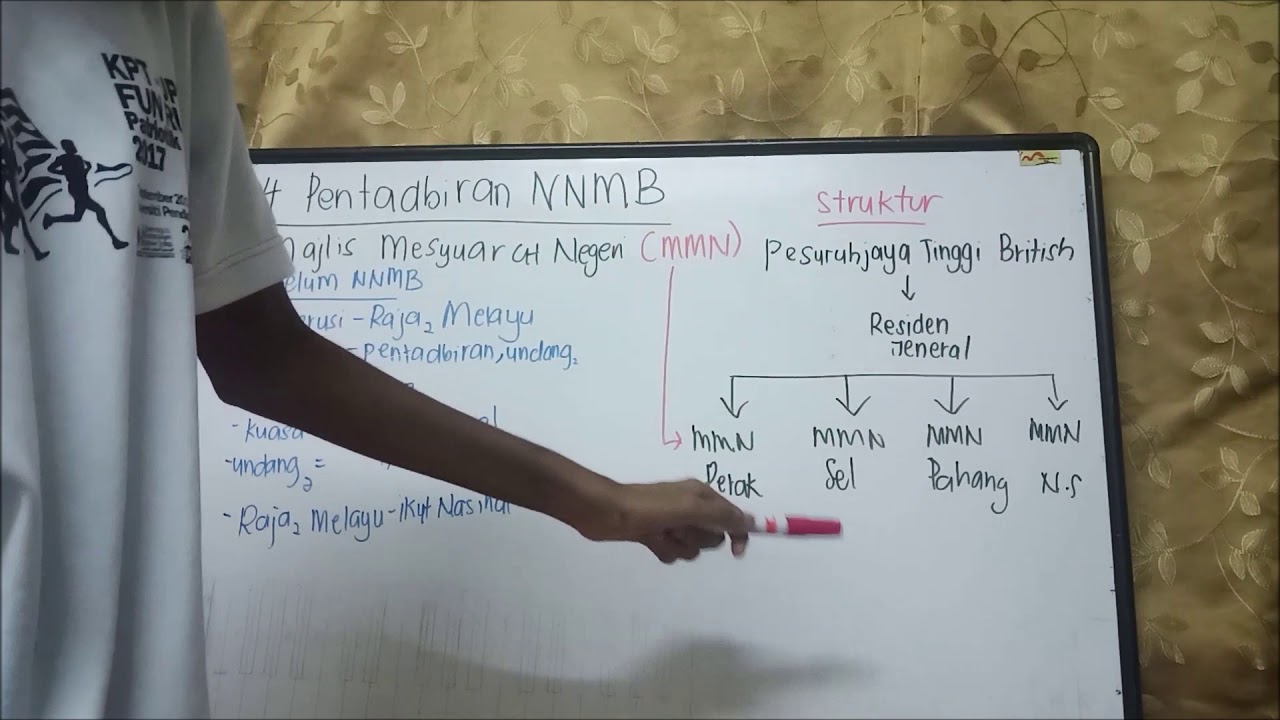 KPT
FUN
Patriotik
2017
Pentadbiran NNMB
Mesyuarat Negeri (MMN)
NNMB
Raja2 Melayu
-Pentadbiran, undang2
-kuasa
-undang2 =
-Raja2 Melayu-ikut Nasihat
Struktur
Pesuruhjaya Tinggi British
Residen
Jeneral
MMN MMN MMN MMN
Perak Sel Pahang N.S